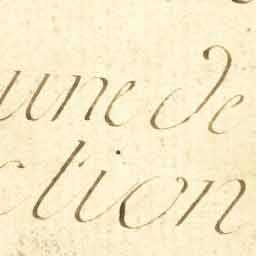 une de
l'ion